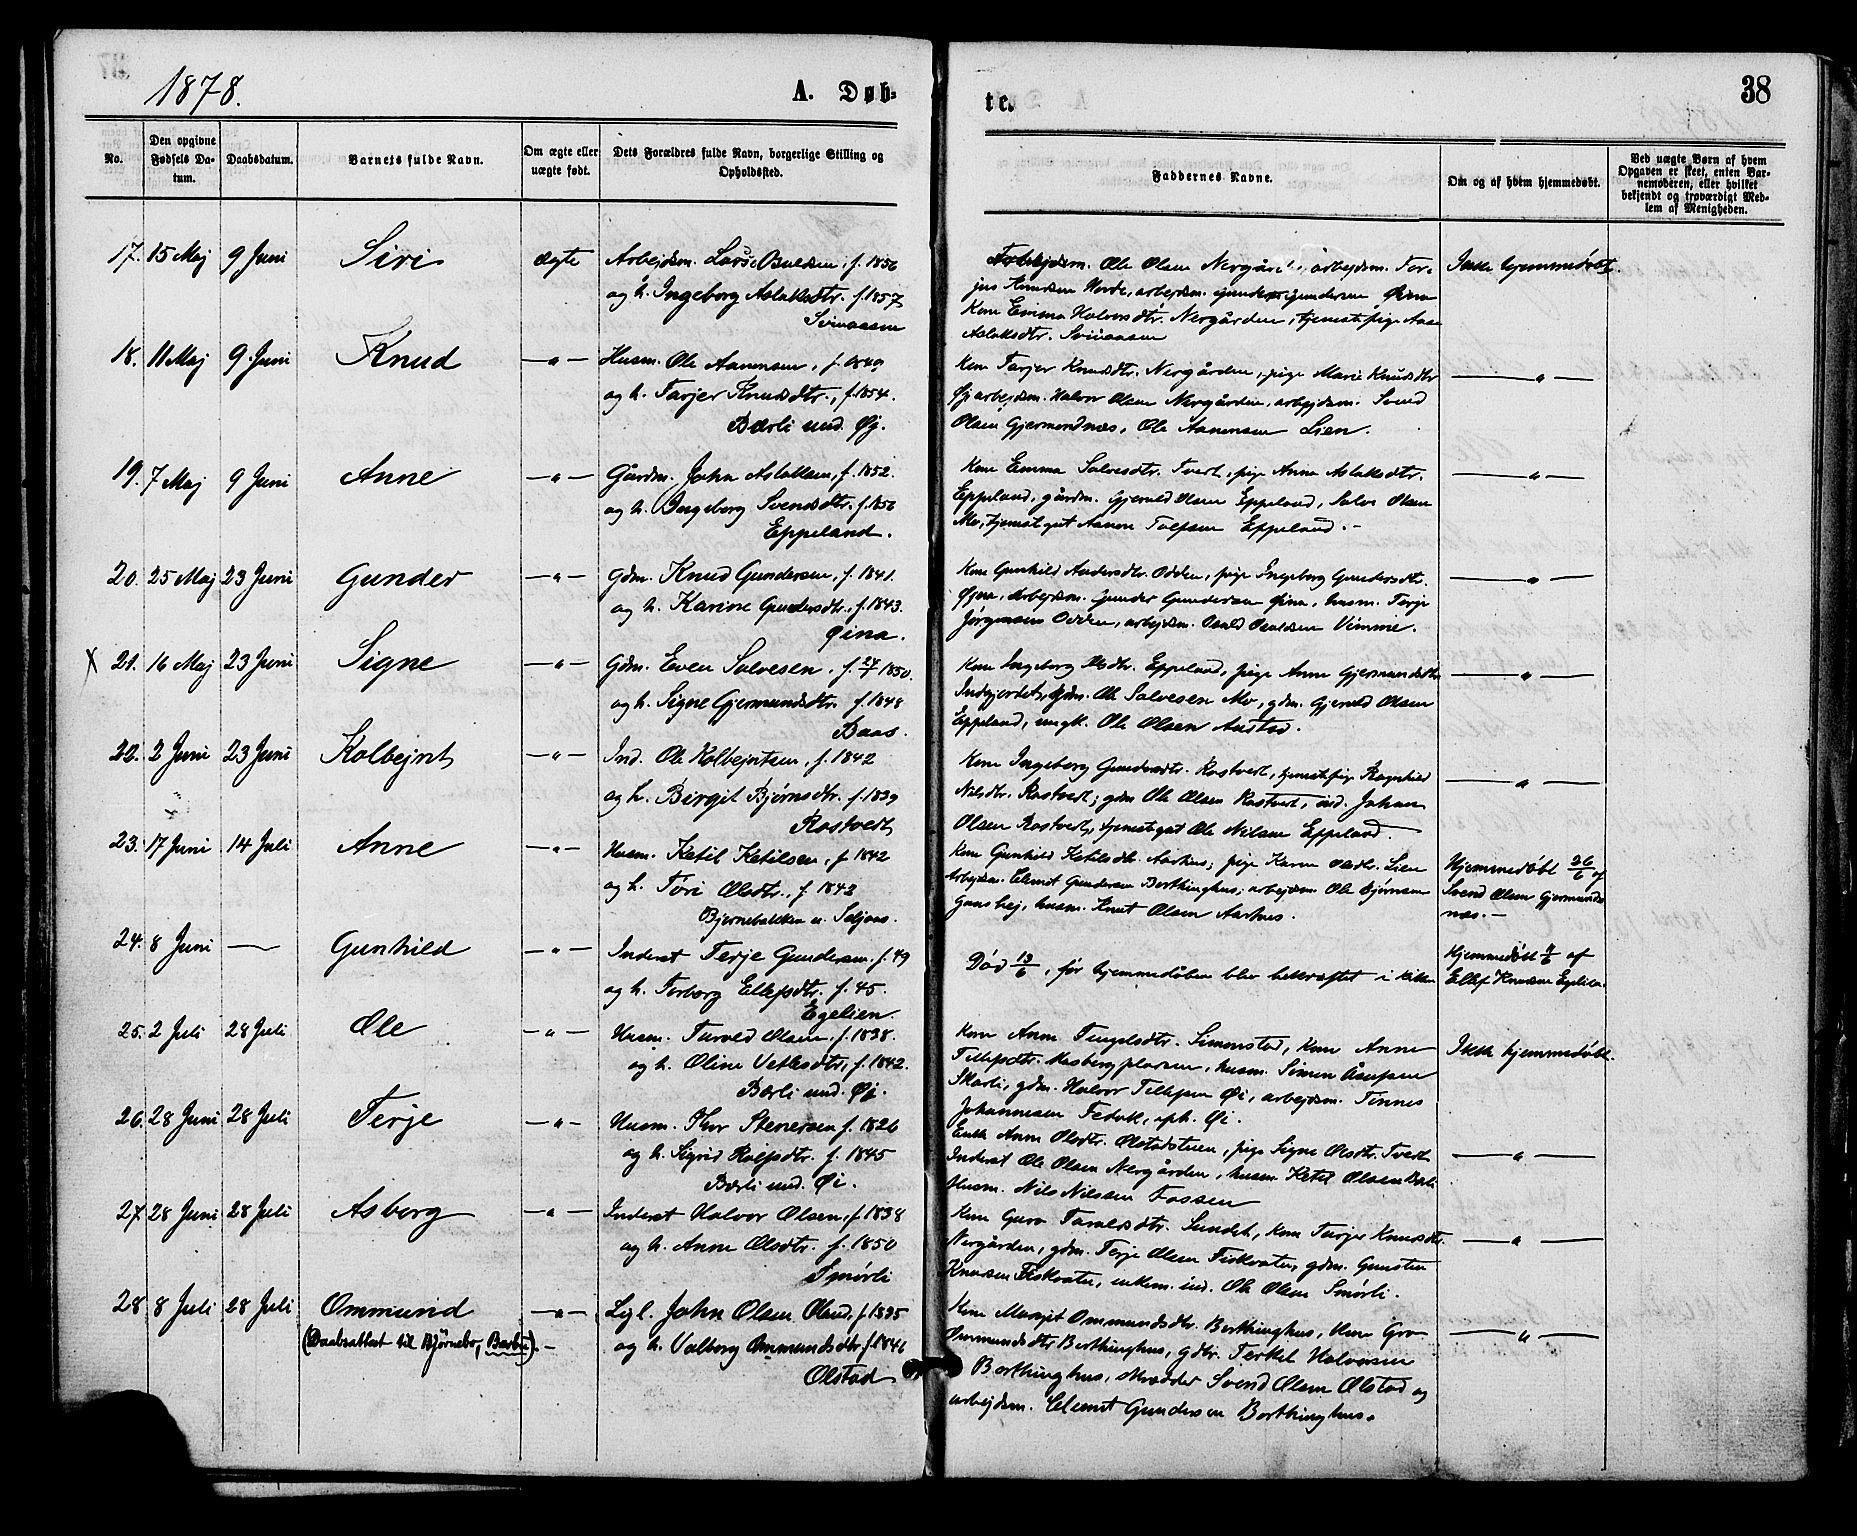 1878.
A. Døb-
te.
38
No.
Den opgivne Fødsels Da-tum.
Daabsdatum.
Barnets fulde Navn.
Om ægte eller uægte født.
Dets Forældres fulde Navn, borgerlige Stilling og Opholdssted.
Faddernes Navne.
Om og af hvem hjemmedøbt.
Ved uægte Børn af hvem Opgaven er skeet, enten Bar-nemoderen, eller hvilket bekjendt og troværdigt Med-lem af Menigheden.
17. 15 Maj 9 Juni Siri ægte Arbejdsm. Lars Osuldsen, f. 1856
og h. Ingeborg Aslaksdtr. f. 1857
Arbejdsm. Ole Olsen Nergården, arbejdsm. Ter-
jus Knudsen, arbejdsm. Gunder Gundersen Øina
Kone Emma Halvorsdtr. Nergården, tjenestepige Aase
Aslaksdtr.
Ikke hjemmedøbt.
18. 11 Maj 9 Juni Knud —"— Husm. Ole Aanensen, f. 1849
og h. Tarjer Knudsdtr., f. 1854.
Bærli und. Øy.
Kone Tarjer Knudsdtr. Nergården, pige Marie Knudsdtr
Øy arbejdsm. Halvor Olsen Nergården, arbejdsm. Svend
Olsen Gjermondnæs, Ole Aanensen Lien.
—"—
19. 7 Maj 9 Juni Anne —"— Gårdm. John Aslaksen, f. 1852.
og h. Ingeborg Svendsdtr. f. 1856
Eppeland.
Kone Emma Salvesdtr. Tvert, pige Anne Aslaksdtr.
Eppeland, gårdm. Gjeruld Olsen Eppeland, Salve Olsen
Mo, tjenestgut Aanon Tellefsen Eppeland. -
—"—
20. 25 Maj 23 Juni Gunder —"— Gdm. Knud Gundersen, f. 1841.
og h. Karine Gundersdtr., f. 1843.
Øina.
Kone Gunhild Andersdtr. Odden, pige Ingeborg Gundersdtr.
Øina, arbejdsm. Gunder Gundersen Øina, husm. Terje
Jørgensen Odden, arbejdsm. Osuld Osuldsen Vimme.
—"—
X 21. 16 Maj 23 Juni Signe —"— Gdm. Even Salvesen, f. 27/7 1850.
og h. Signe Gjermundsdtr. f. 1848
Baas.
Kone Ingeborg Olsdtr. Eppeland, pige Anne Gjermundsdtr
Indgjerdet, gdm. Ole Salvesen Mo, gdm. Gjeruld Olsen
Eppeland, ungk. Ole Olsen Austad.
—"—
22. 2 Juni 23 Juni Kolbejnt —"— Ind. Ole Kolbejntsen, f. 1842
og h. Birgit Bjørnsdtr. f. 1839
Rostvedt
Kone Ingeborg Gundersdtr. Rostvedt, tjenestepige Ragnhild
Nilsdtr. Rostvedt, gdm Ole Olsen Rostvedt, ind. Johan
Olsen Rostvedt, tjenestgut Ole Nilsen Eppeland.
—"—
23. 17 Juni 14 Juli Anne —"— Husm. Ketil Ketilsen, f. 1842
og h. Tøri Olsdtr., f. 1842
Bjørnebakken u. Seljaas.
Kone Gunhild Ketilsdtr. Aarhus, pige Karen Olsdtr. Lien
Arbejdsm. Clemet Gundersen Borthinghus, arbejdsm. Ole Bjørnsen
husm. Knut Olsen Aarhus.
Hjemmedøbt 26/6 af
Svend Olsen Gjermunds-
næs. -
24. 8 Juni — Gunhild —"— Inderst Terje Gundersen, f. 49
og h. Torborg Ellefsdtr. f. 45.
Egelien.
Død 13/6, før hjemmedåben blev bekræftet i kirken
Hjemmedøbt 9/6 af
Ellef Knudsen Egelien.
25. 2 Juli 28 Juli Ole —"— Husm. Tarald Olsen, f. 1838.
og h. Oline Vetlesdtr., f. 1842.
Bærli und. Øi.
Kone Anne Tengelsdtr. Simonstad, kone Anne
Tellefsdtr. Aasbergplassen, husm. Simen
Skarli, gdm. Halvor Tellefsen Øi, arbejdsm. Tønnes
Johannesen Fedvik, oph. Øi.
Ikke hjemmedøbt.
26. 28 Juni 28 Juli Terje —"— Husm. Thor Stenersen f. 1826
og h. Sigrid Rolfsdtr. f. 1845
Bærli und. Øi.
Enke Anne Olsdtr. Ølstadstuen, pige Signe Olsdtr. Tvert
Inderst Ole Olsen Nergården, husm Ketil Olsen Bærli
Husm. Nils Nilssen Fossen
—"—
27. 28 Juni 28 Juli Asborg —"— Inderst Halvor Olsen, f. 1838
og h. Anne Olsdtr. f. 1850
Smørli
Kone Guro Taraldsdtr. Sundet, kone Tarjer Knudsdtr.
Nergården, gdm. Terje Olsen Fiskvatn, gdm. Gunsten
Knudsen Fiskvatn, enkem. ind. Ole Olsen Smørli.
—"—
28. 8 Juli 28 Juli Ommund —"— Lgl. John Olsen Ølstad, f. 1835
(Daabsattest til Bjørnebo, Barbu). - og h. Valborg Ommundsdtr. f. 1846
Ølstad
Kone Margit Ommundsdtr. Borthinghus, kone Gro
Ommundsdtr Borthinghus, gdbr. Terkel Halvorsen
Borthinghus, skrædder Svend Olsen Ølstad og
arbejdsm. Clemet Gundersen Borthinghus.
—"—